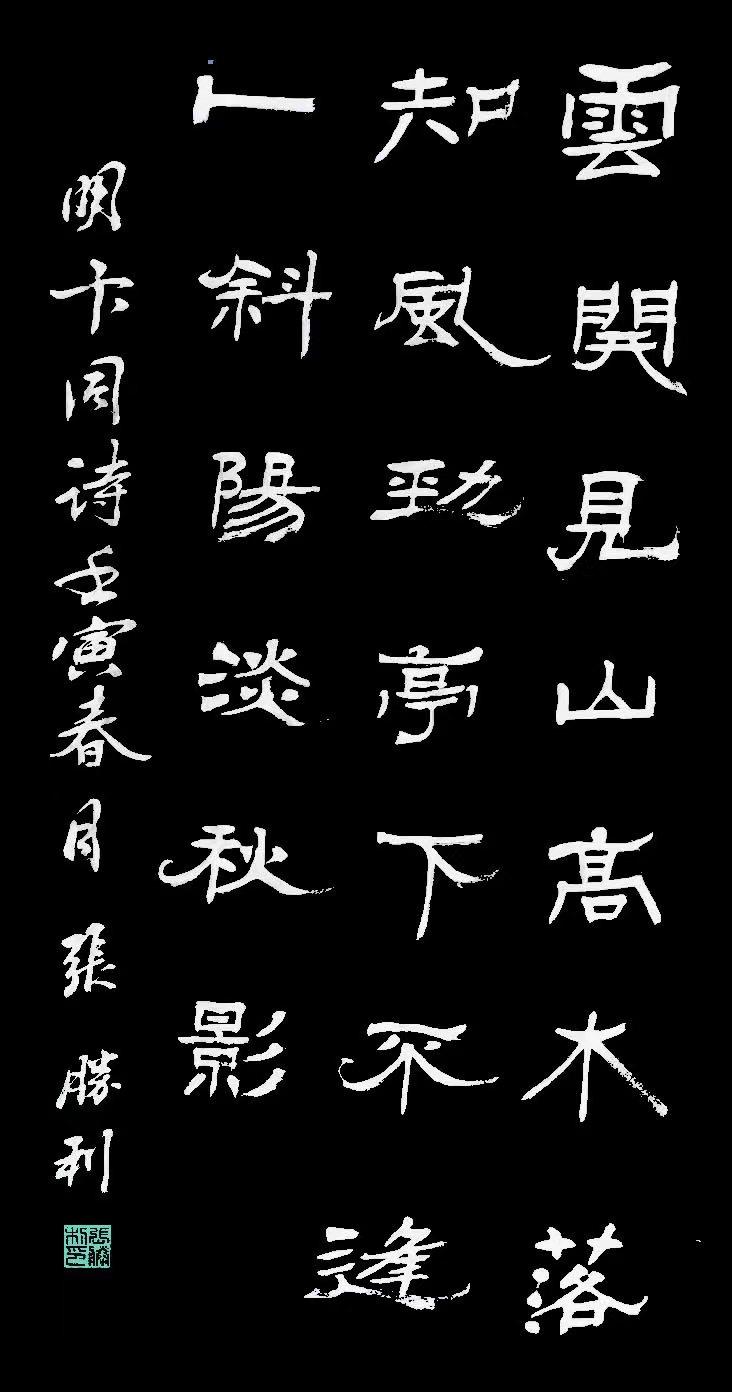 雲開見山高木落
知風勁亭下不逢
人斜陽淡秋影
明卞同詩壬寅春月張勝利
張勝利印